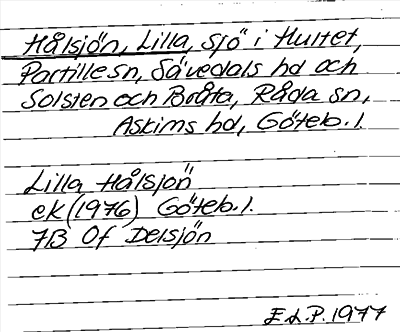 Hålsjön, Lilla, sjö i Hultet,
Partille sn, Sävedals hd och
Solsten och Bråta, Råda sn,
Askims hd, Göteb. l.
Lilla Hålsjön
ek (1976) Göteb. l.
7B 0f Delsjön
E.L.P. 1977